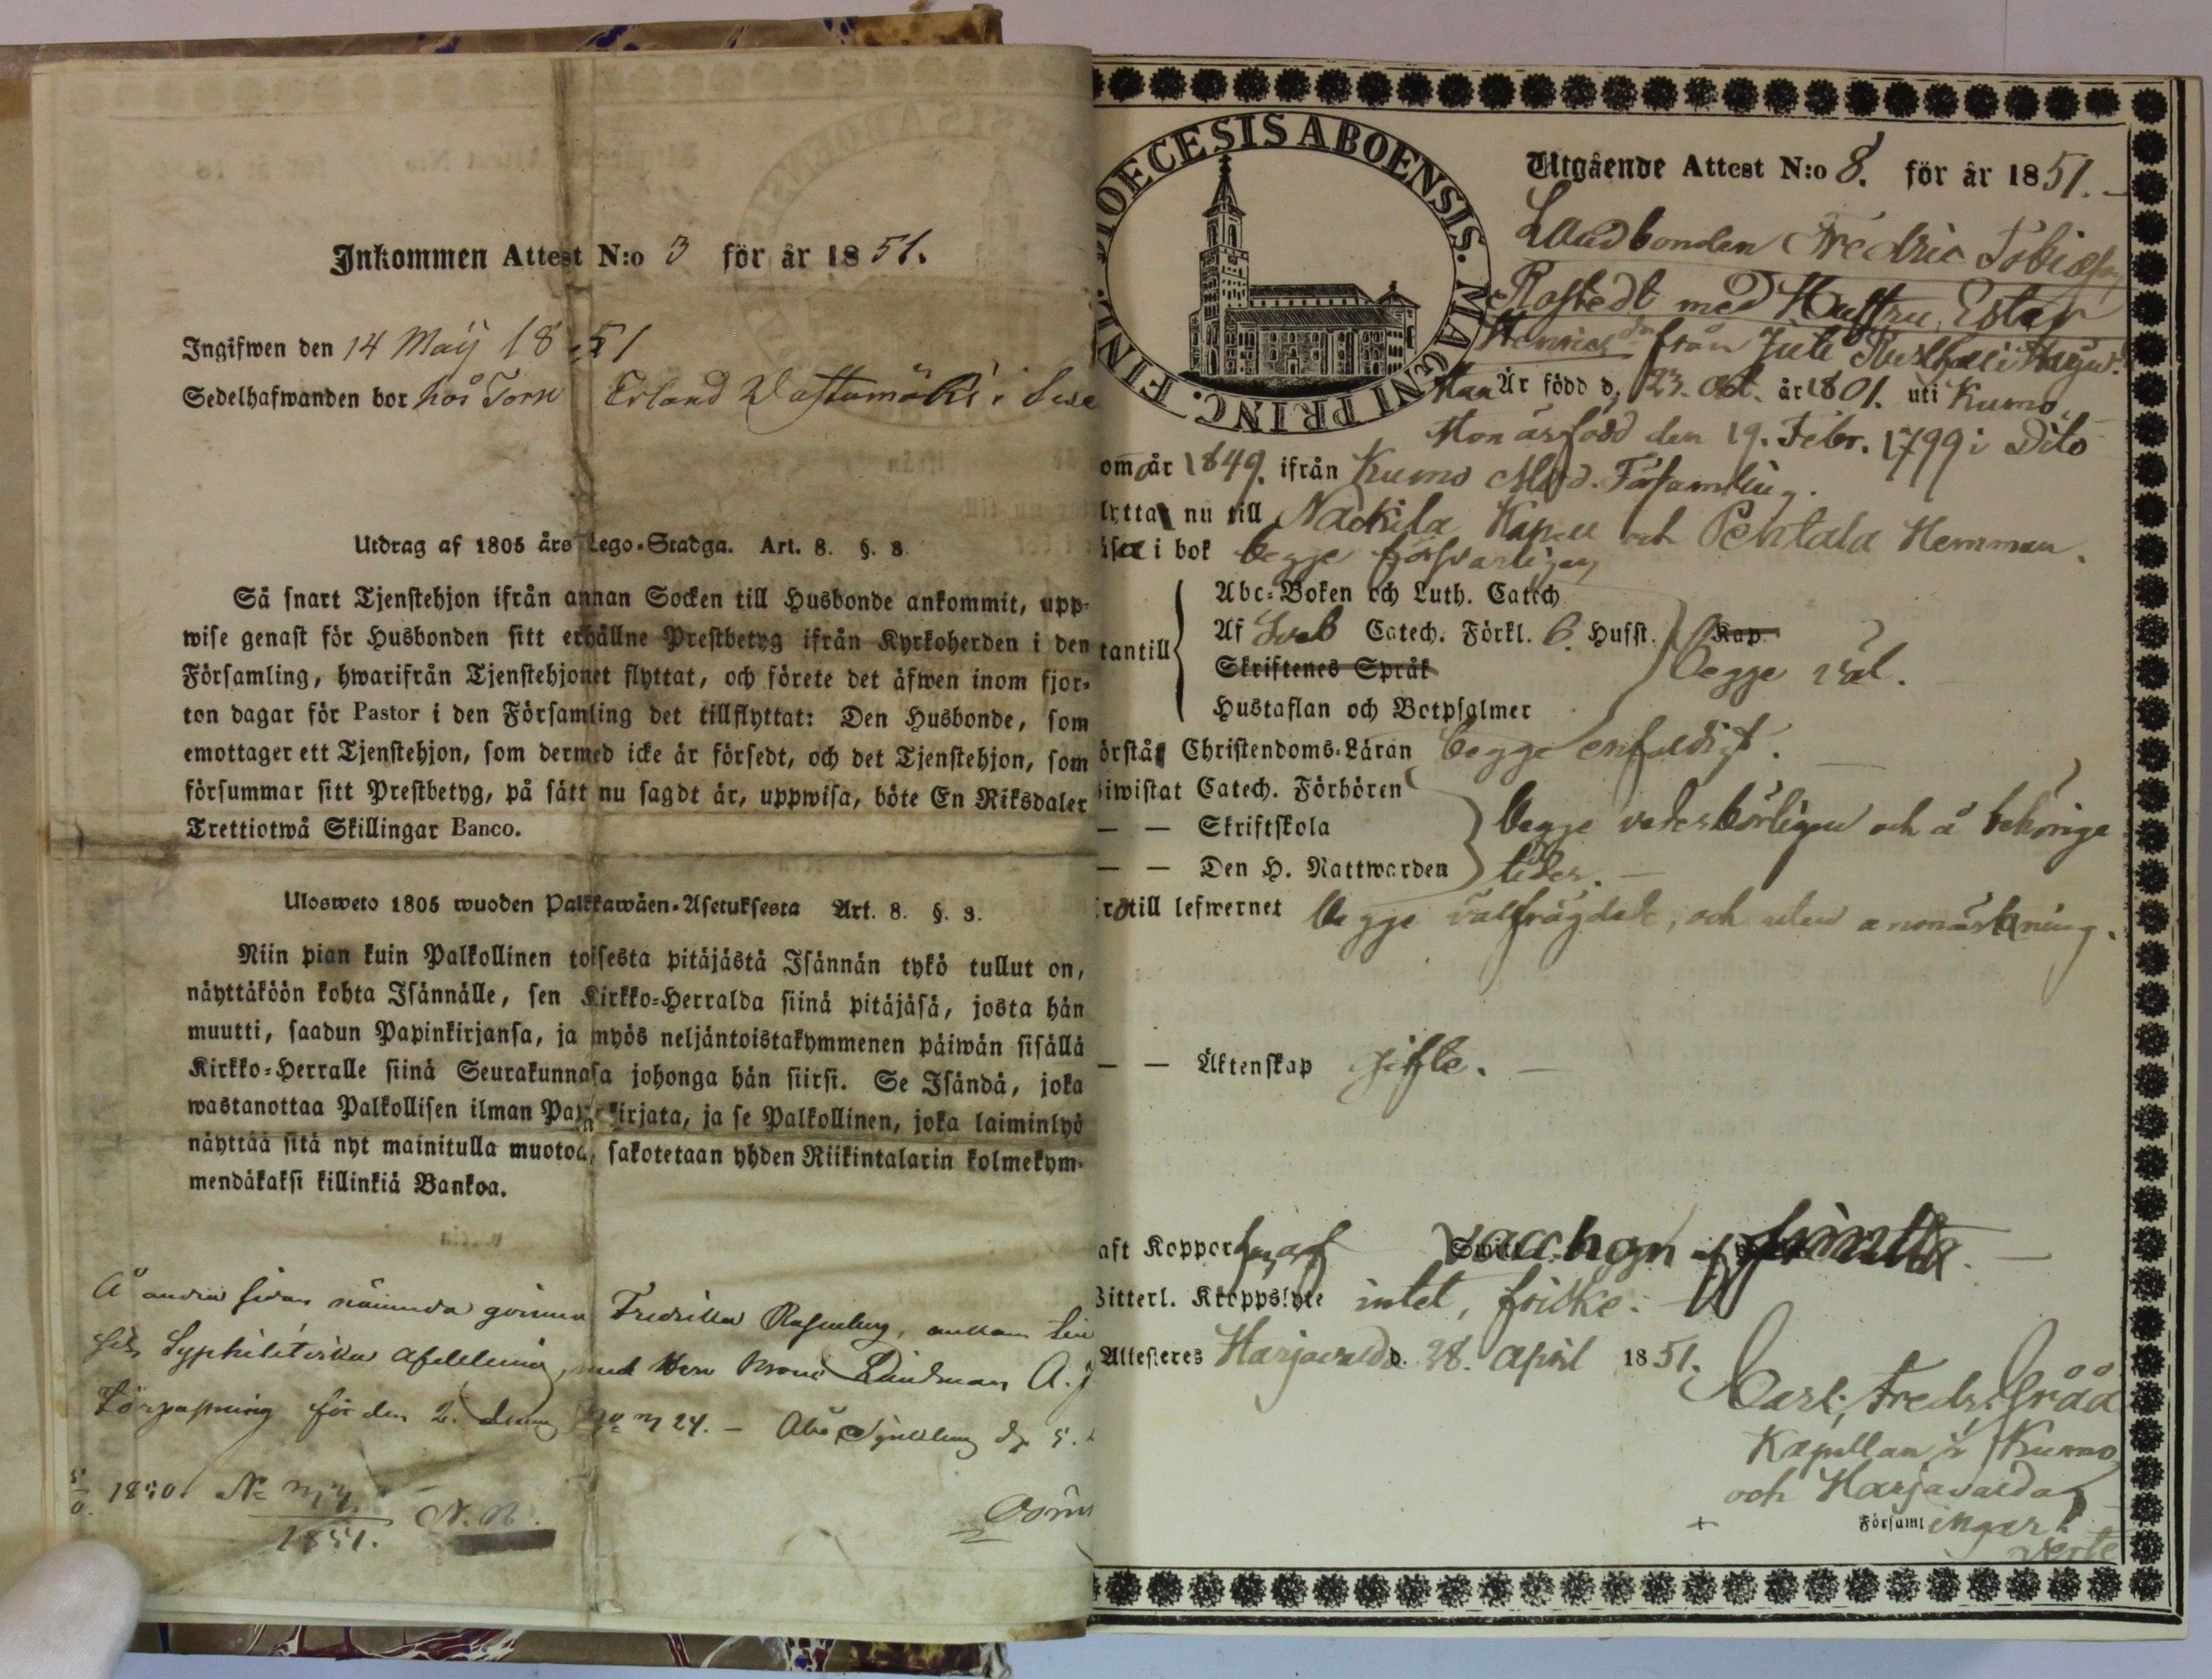 Inkommen Attest N:o 3 för år 1851.
Ingifwen den 14 Maij 1851
Sedelhafwanden bor hos Torp Erland
Utdrag af 1805 års Lego-Stadga. Art. 8. §. 8.
Så snart Tjenstehjon ifrån annan Socken till Husbonde ankommit, upp-
wise genast för Husbonden sitt erhållne Prestbetyg ifrån Kyrkoherden i den
Församling, hwarifrån Tjenstehjonet flyttat, och förete det äfwen inom fjor-
ton dagar för Pastor i den Församling det tillflyttat: Den Husbonde, som
emottager ett Tjenstehjon, som dermed icke är försedt, och det Tjenstehjon, som
försummar sitt Prestbetyg, på sätt nu sagdt är, uppwisa, böte En Riksdaler
Trettiotwå Skillingar Banco.
Ulosweto 1805 wuoden Palkkawäen-Asetuksesta Art. 8. §. 8.
Niin pian kuin Palkollinen toisesta pitäjästä Isännän tykö tullut on,
näyttäköön kohta Isännälle, sen Kirkko-Herralda siinä pitäjäsä, josta hän
muutti, saadun Papinkirjansa, ja myös neljäntoistakymmenen päiwän sisällä
Kirkko-Herralle siinä Seurakunnasa johonga hän siirsi. Se Isändä, joka
wastanottaa Palkollisen ilman Papinkirjata, ja se Palkollinen, joka laiminlyö
näyttää sitä nyt mainitulla muotoa, sakotetaan yhden Riikintalarin kolmekym-
mendäkaksi killinkiä Bankoa.
Å andra sidan nämnda qvinna Fredrika
Syphilitiska Afdelning, med
för den N:o 24. – Åbo
1850. N:o
1851. N. N.
DIOECESIS ABOENSIS. MAGNI PRINC. FINL.
Utgående Attest N:o 8. för år 1851.
Landbonden Fredric Tobiasson
Rostedt med Hustru Ester
Henricsdr från Juti Rusthåll i Harjav:
Han Är född d. 23. Oct. år 1801. uti Kumo.
Hon är född den 19. Febr. 1799 i Dito
om år 1849. ifrån Kumo Mod. Församling.
lytta nu till Nackila Kapell och Pentala Hemman.
äser i bok begge försvarligen
Abc-Boken och Luth. Catech
tantill Af Sveb Catech. Förkl. B. Husst. Kap.
Skriftenes Språk begge väl.
Hustaflan och Botpsalmer
örstår Christendoms-Läran begge enfaldigt.
iwistat Catech. Förhören
— — Skriftskola begge vederbörligen och å behöriga
— — Den H. Nattwarden tider.
till lefwernet begge välfrägdade, och utan anmärkning.
— — Äktenskap gifte.
aft Koppor
itterl. Kroppslyte intet, friske.
Attesteres Harjavalda d. 28. April 1851.
Carl Fredr: Gråå
Kapellan i Kumo
och Harjavalda
Församlingar
verte